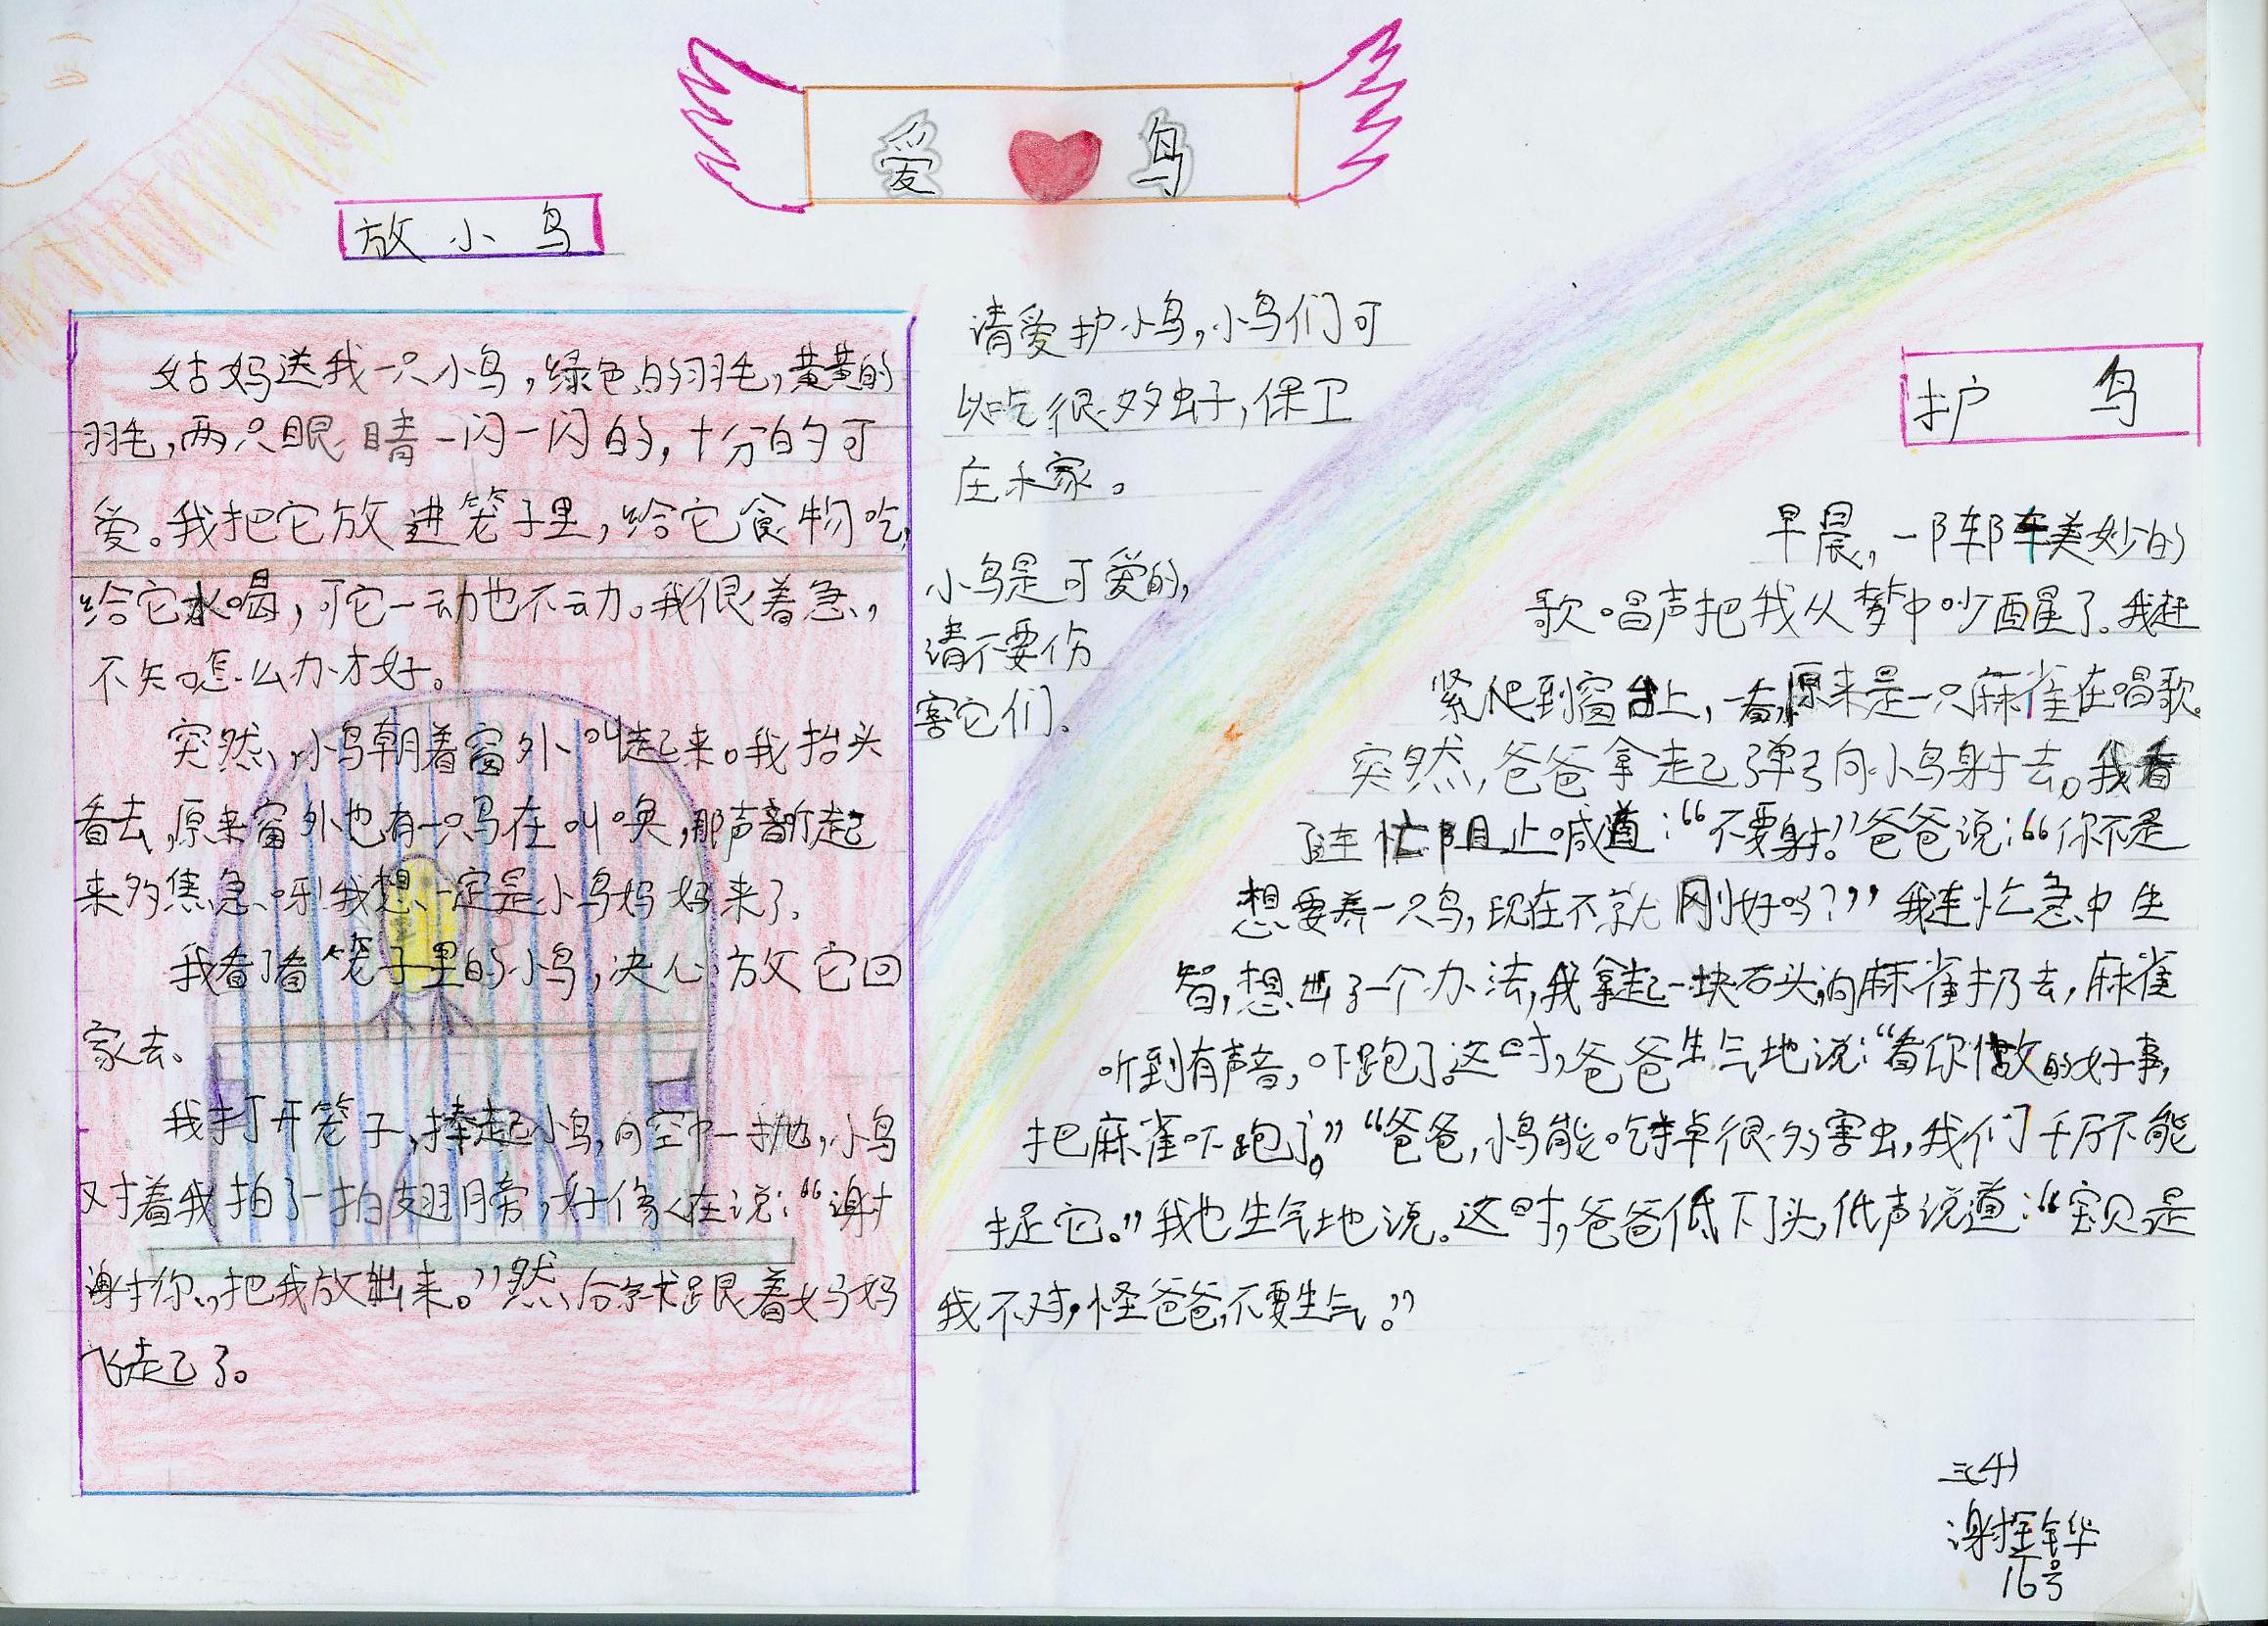 爱 鸟
放小鸟
姑妈送我一只小鸟，绿色的羽毛，黄黄的
羽毛，两只眼睛一闪一闪的，十分的可
爱。我把它放进笼子里，给它食物吃，
给它水喝，可它一动也不动。我很着急，
不知怎么办才好。
突然，小鸟朝着窗外叫起来。我抬头
看去，原来窗外也有一只鸟在叫唤，那声音听起
来多焦急呀！我想，一定是小鸟妈妈来了。
我看了看笼子里的小鸟，决心放它回
家去。
我打开笼子，捧起小鸟，向空中一抛，小鸟
对着我拍了一拍翅膀，好像在说：“谢
谢你，把我放出来。”然后就跟着妈妈
飞走了。
请爱护小鸟，小鸟们可
以吃很多虫子，保卫
庄禾家。
小鸟是可爱的，
请不要伤
害它们。
护鸟
早晨，一阵阵美妙的
歌唱声把我从梦中吵醒了。我赶
紧爬到窗台上，一看，原来是一只麻雀在唱歌。
突然，爸爸拿起弹弓向小鸟射去。我看
了连忙阻止喊道：“不要射。”爸爸说：“你不是
想要养一只鸟，现在不就刚好吗？”我连忙急中生
智，想出了一个办法，我拿起一块石头，向麻雀扔去，麻雀
听到有声音，吓跑了。这时，爸爸生气地说：“看你做的好事，
把麻雀吓跑了。”“爸爸，小鸟能吃掉很多害虫，我们千万不能
捉它。”我也生气地说。这时，爸爸低下了头，低声说道：“宝贝是
我不对，怪爸爸，不要生气。”
三(4)
谢 华
16号